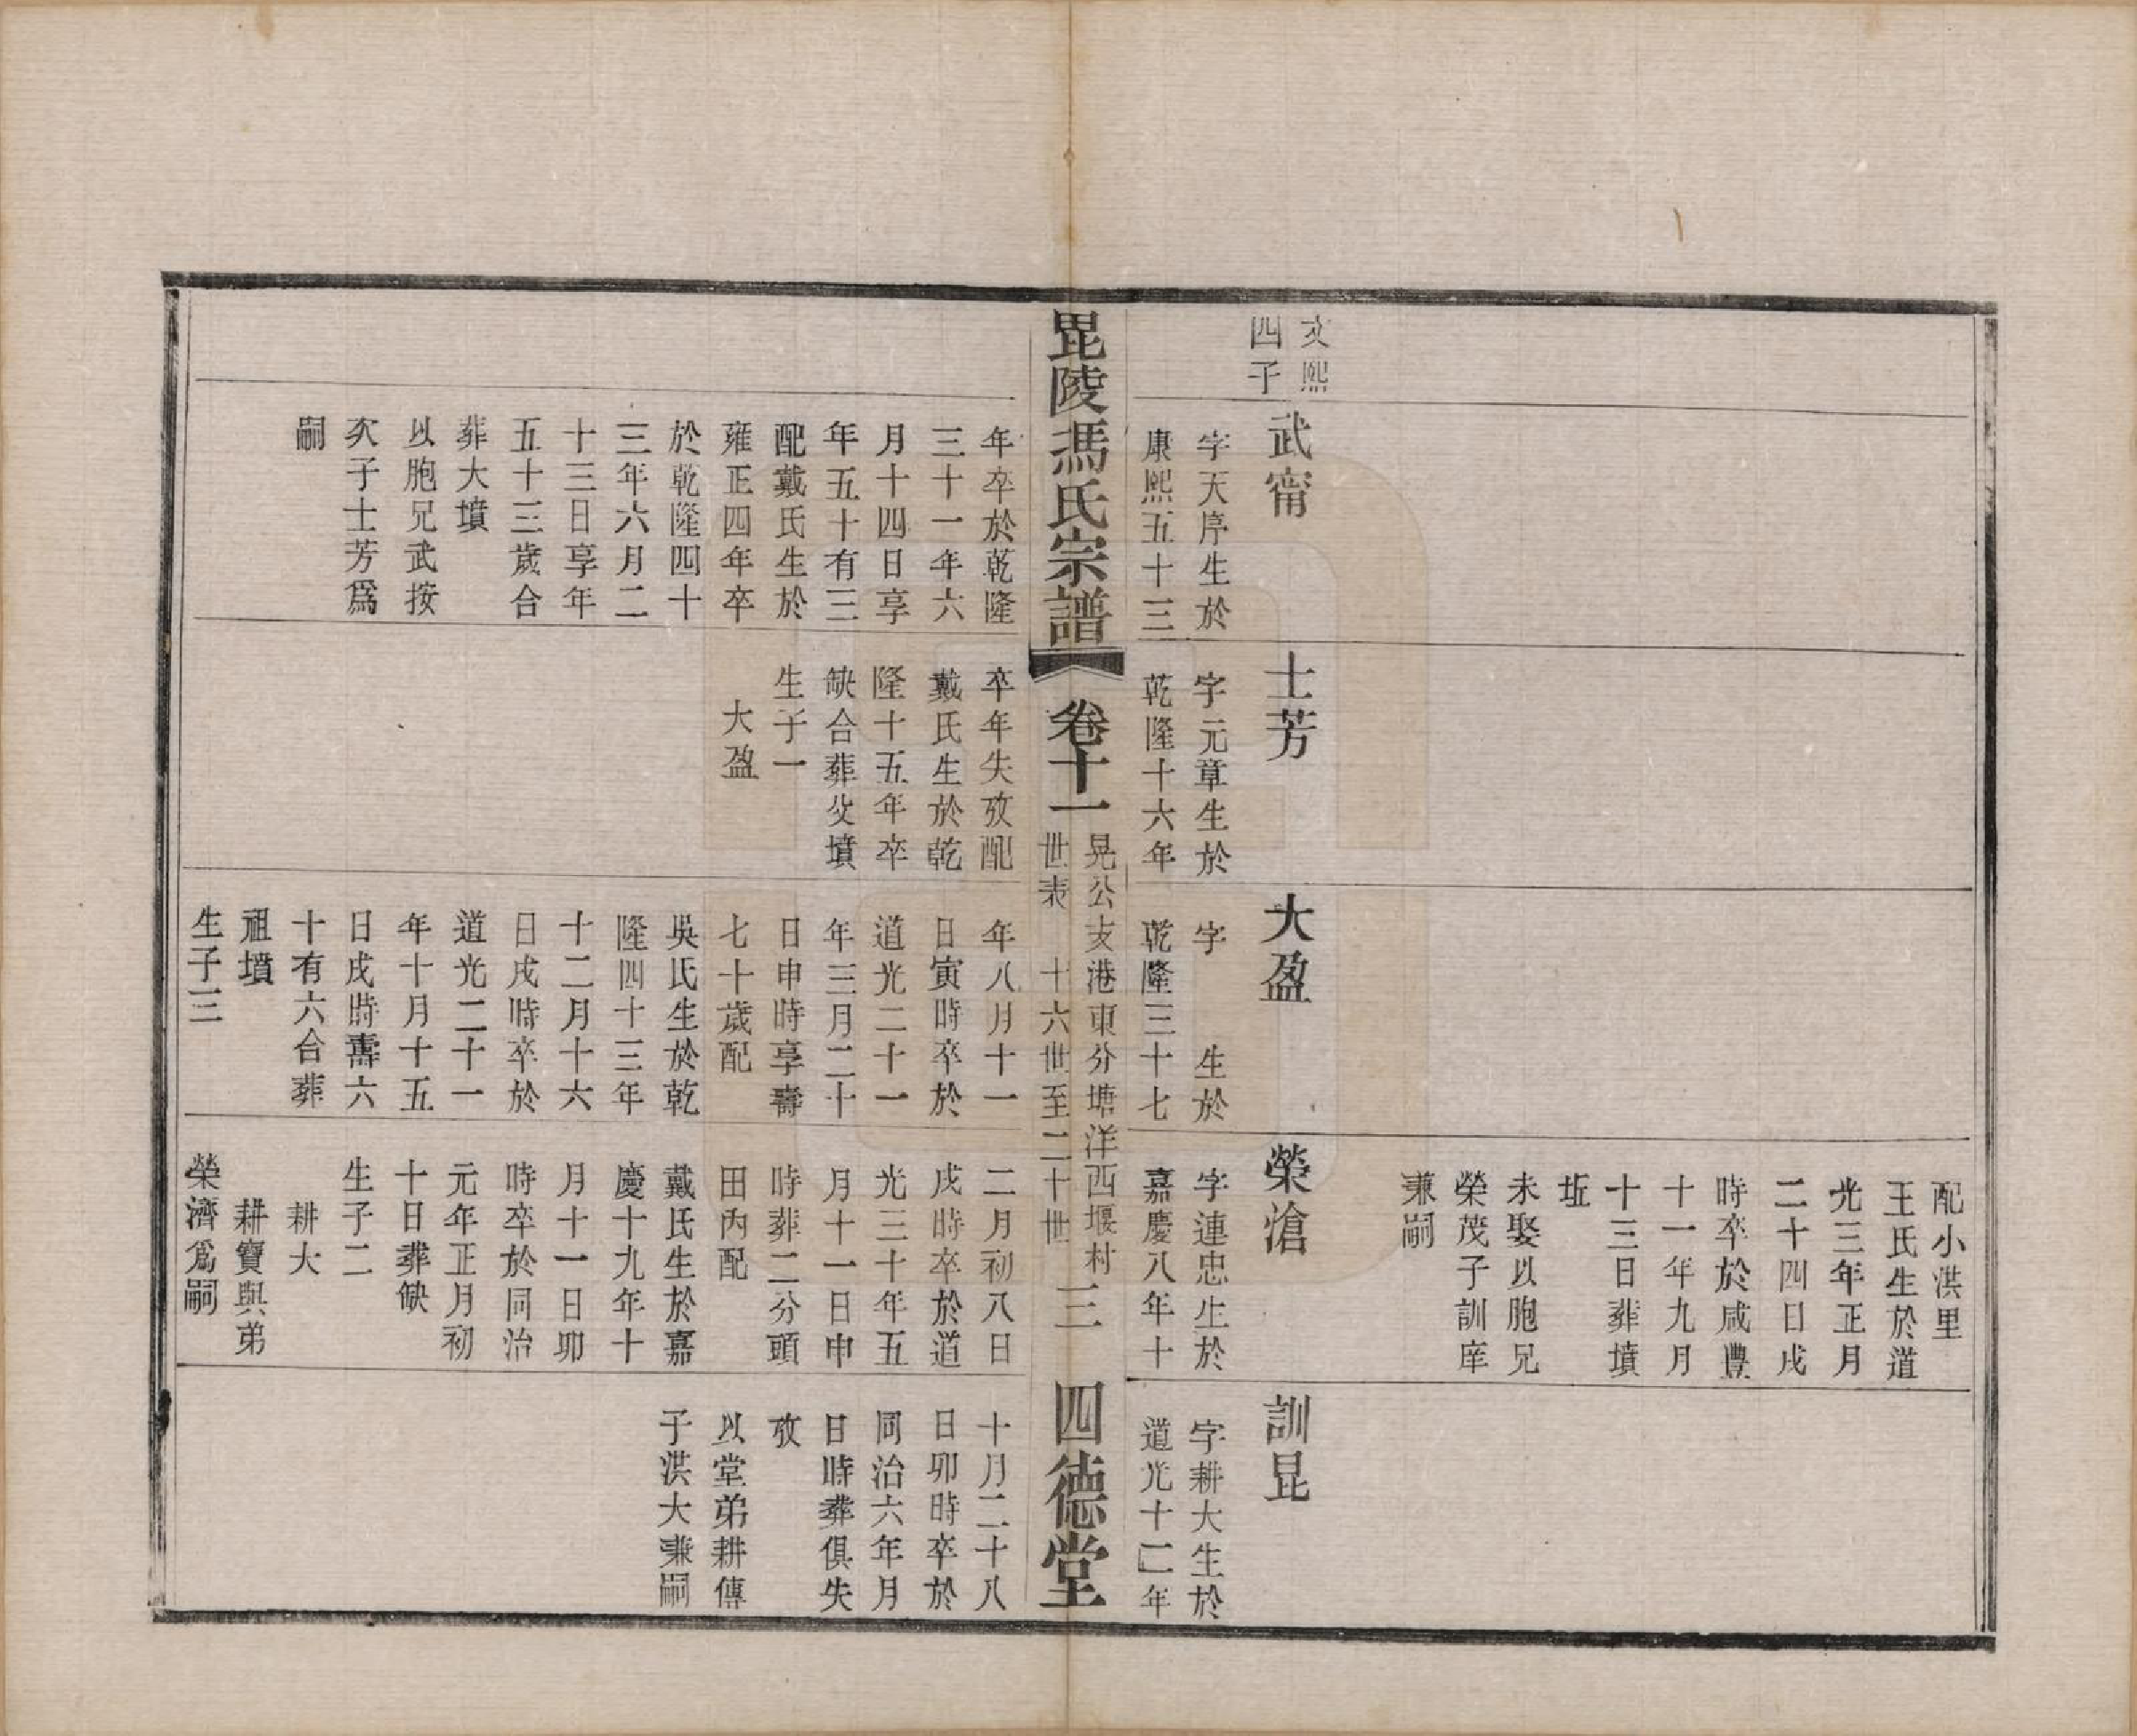 文熙
四子
武甯
字天序生於
康熙五十三
年卒於乾隆
三十一年六
月十四日享
年五十有三
配戴氏生於
雍正四年卒
於乾隆四十
三年六月二
十三日享年
五十三歲合
葬大墳
以胞兄武按
次子士芳爲
嗣
士芳
字元章生於
乾隆十六年
卒年失攷配
戴氏生於乾
隆十五年卒
缺合葬父墳
生子一
大盈
大盈
字　　生於
乾隆三十七
年八月十一
日寅時卒於
道光二十一
年三月二十
日申時享壽
七十歲配
吳氏生於乾
隆四十三年
十二月十六
日戌時卒於
道光二十一
年十月十五
日戌時壽六
十有六合葬
祖墳
生子三
配小淇里
王氏生於道
光三年正月
二十四日戌
時卒於咸豐
十一年九月
十三日葬墳
坵
未娶以胞兄
榮茂子訓庠
兼嗣
榮滄
字連忠生於
嘉慶八年十
二月初八日
戌時卒於道
光三十年五
月十一日申
時葬二分頭
田內配
戴氏生於嘉
慶十九年十
月十一日卯
時卒於同治
元年正月初
十日葬缺
生子二
耕大
耕寶與弟
榮濟爲嗣
訓昆
字耕大生於
道光十二年
十月二十八
日卯時卒於
同治六年月
日時葬俱失
攷
以堂弟耕傳
子洪大兼嗣
毘陵馮氏宗譜
卷十一
晃公支港東分塘洋西堰村
世表　十六世至二十世
三
四德堂